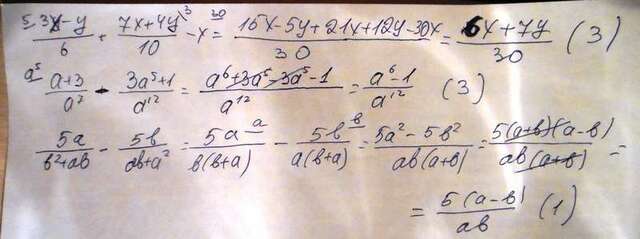 5. (3x-y)/6 + (7x+4y)/10 ³ - x ³⁰ = (15x-5y+21x+12y-30x)/30 = (6x+7y)/30 (3)
a⁵ (a+3)/a² - (3a⁵+1)/a¹² = (a⁶+3a⁵-3a⁵-1)/a¹² = (a⁶-1)/a¹² (3)
5a/(в²+aв) - 5в/(aв+a²) = 5a ᵃ/(в(в+a)) - 5в ᵇ/(a(в+a)) = (5a²-5в²)/(aв(a+в)) = (5(a+в)(a-в))/(aв(a+в)) =
= 5(a-в)/(aв) (1)